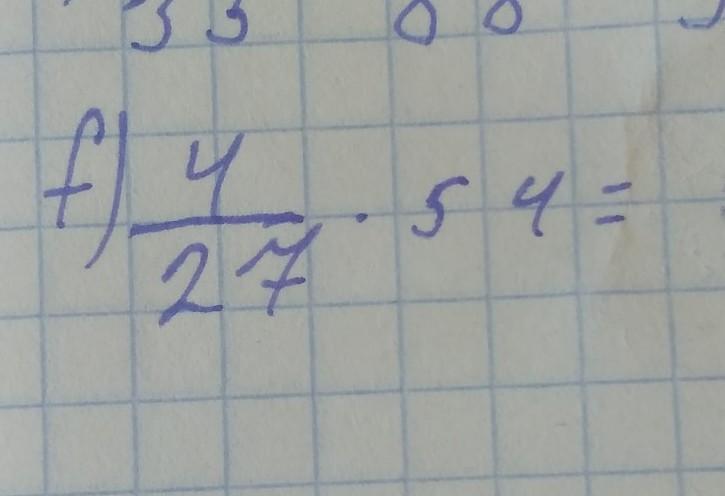 f) 4/27 · 54 =